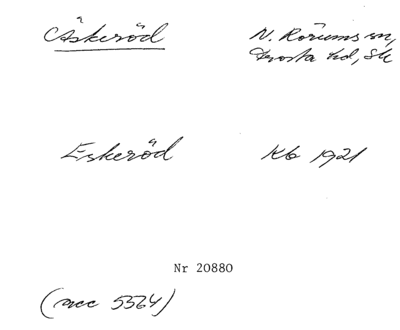 Äskeröd N. Rörums sn,
Frosta hd, Sk
Eskeröd Kb 1921
Nr 20880
(acc 5564)